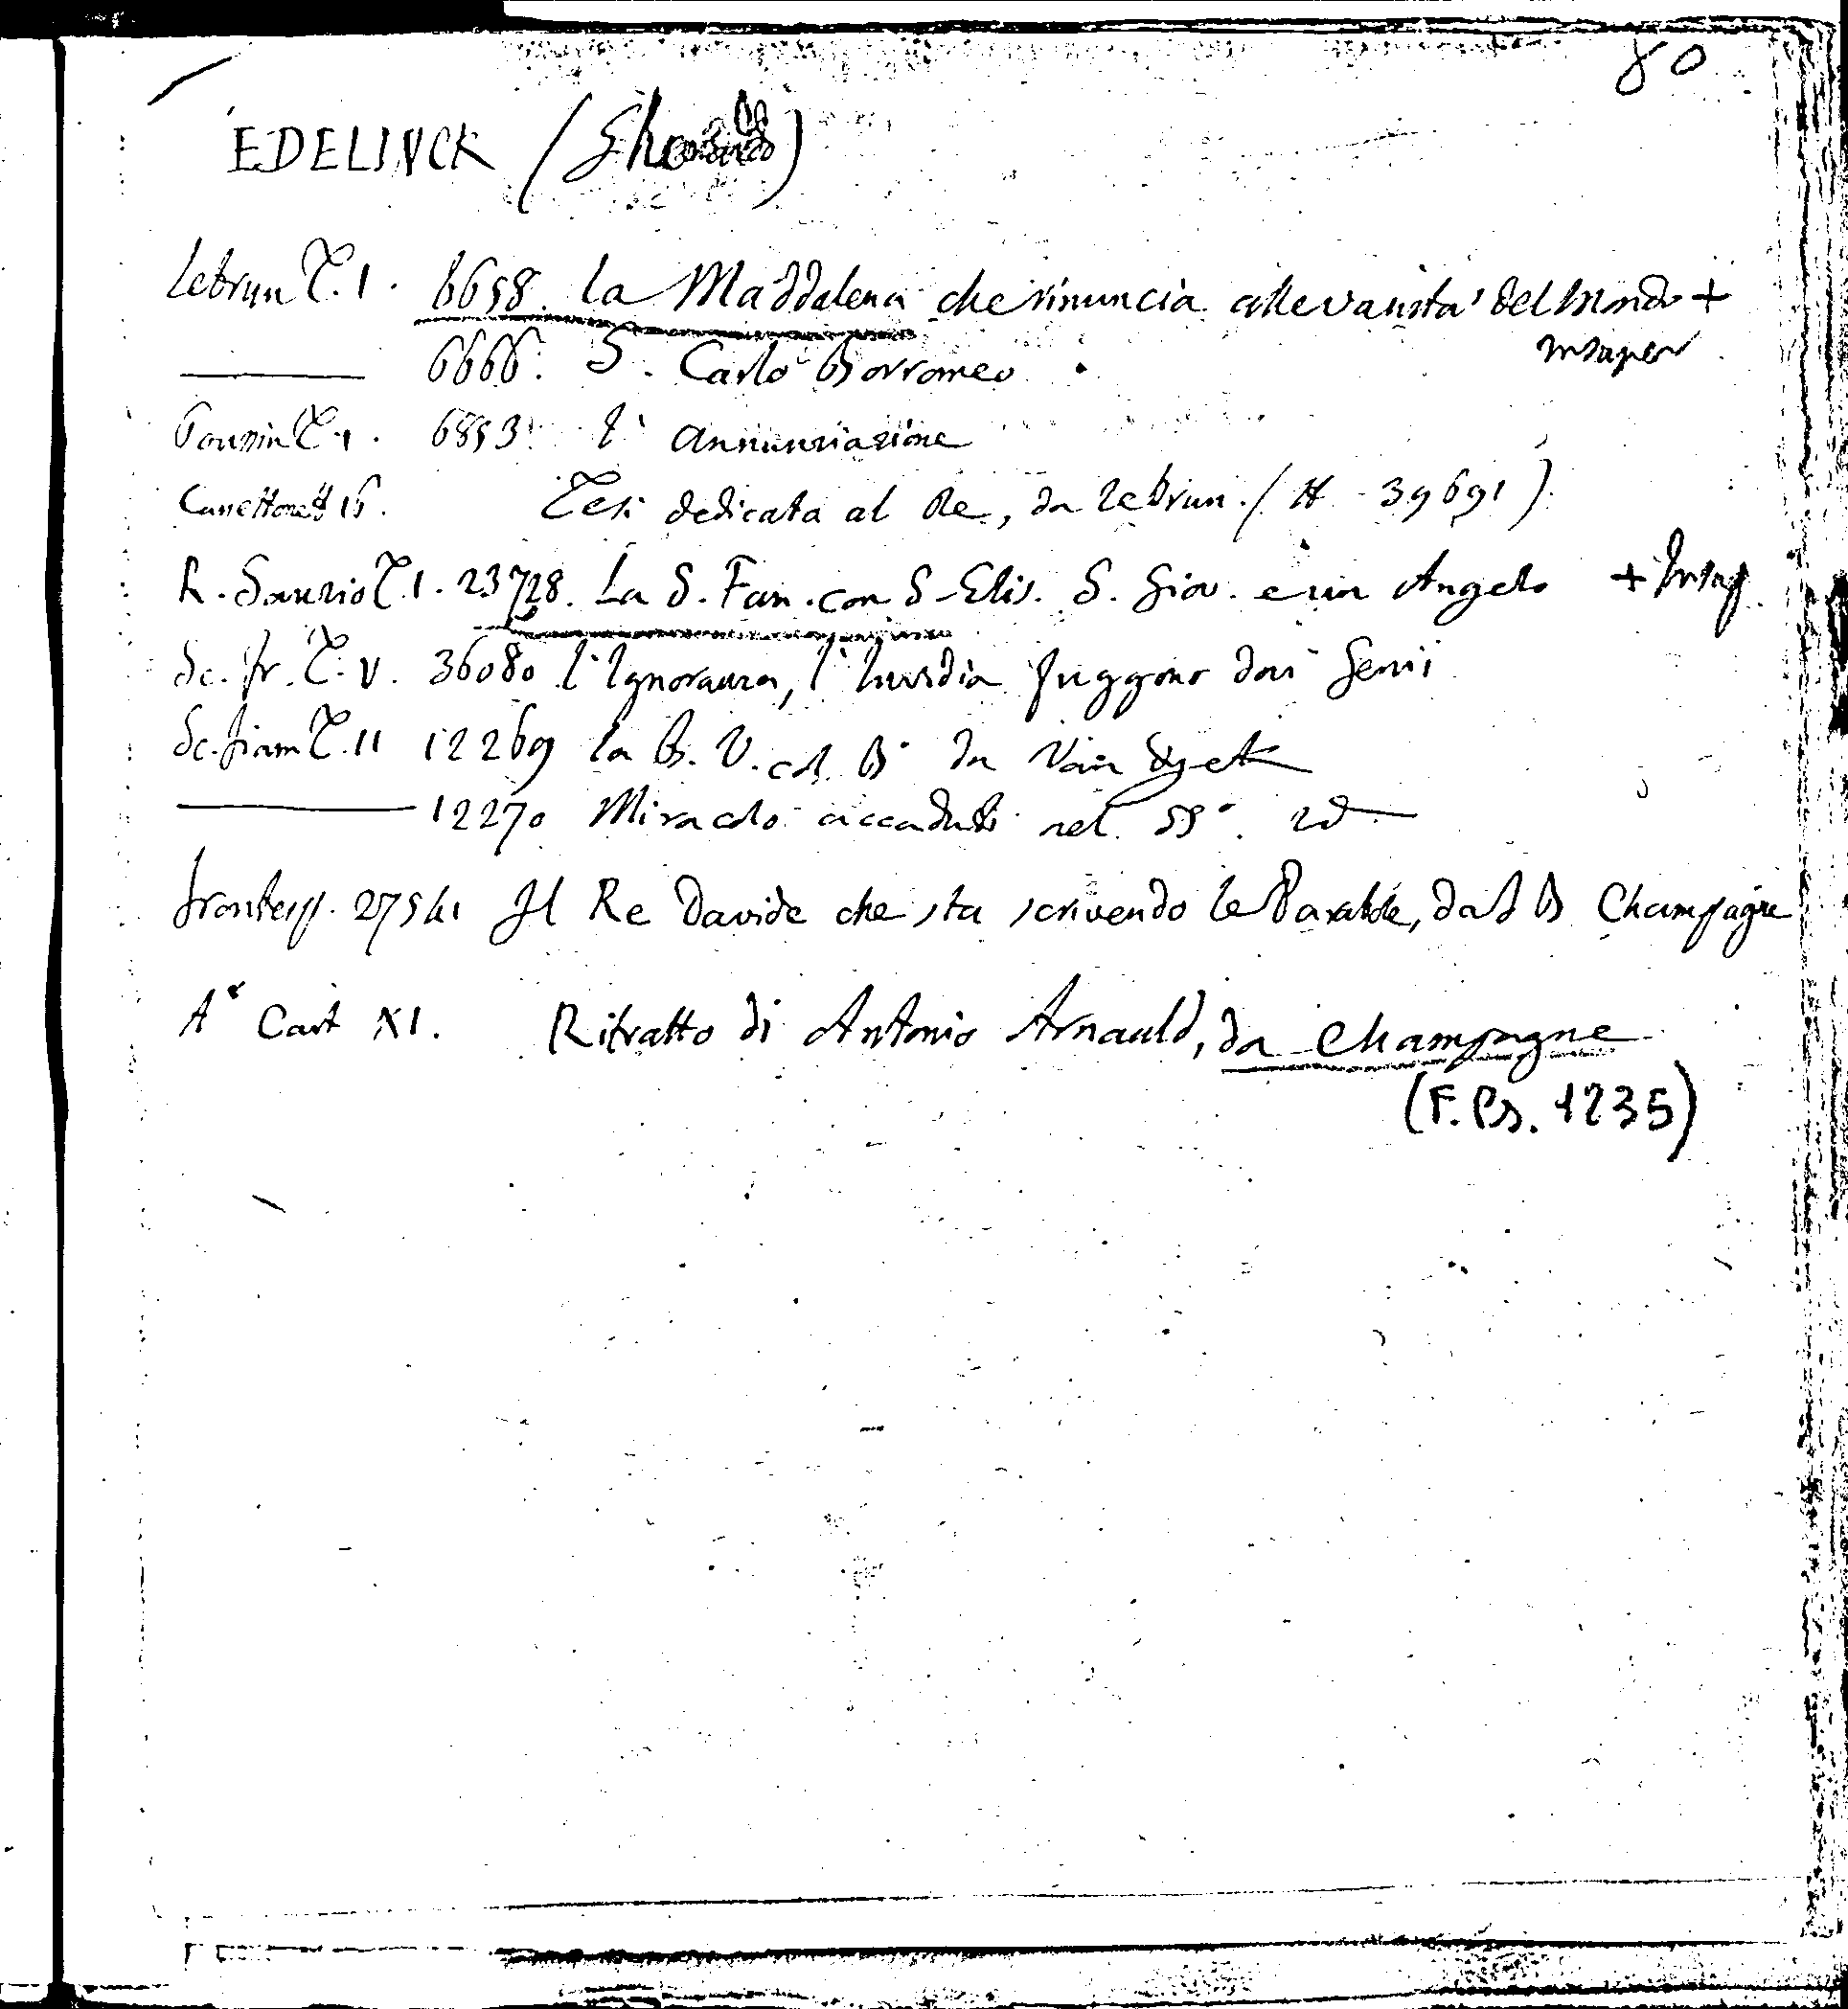 80
EDELINCK (Gherardo)
Lebrun T. 1. 6658. La Maddalena che rinuncia alle vanità del Mondo +
6666. S. Carlo Borromeo
Poussin T. 1. 6853. l'Annunziazione
Cassettone 16. Tesi dedicata al Re, da Lebrun. (H 39691)
R. Sanzio T. 1. 23728. La S. Fam. con S. Elis. S. Giov. e un Angelo +
Sc. fr. T. V. 36080 l'Ignoranza, l'Invidia fuggono dai Genii
Sc. fiam T. II 12269 la B. V. col Bo da Van Dyck
12270 Miracolo accaduto nel SSo. id
frontesp. 27541 Il Re Davide che sta scrivendo le Parabole, da B Champagne
Ar Cart XI. Ritratto di Antonio Arnauld, da Champagne
(F. Bs. 1235)